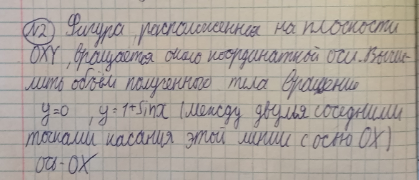 N2 Фигура, расположенная на плоскости
OXY, вращается около координатной оси. Вычис-
лить объём полученного тела вращение
y=0, y=1+sinx (между двумя соседними
точками касания этой линии с осью OX)
ось-OX